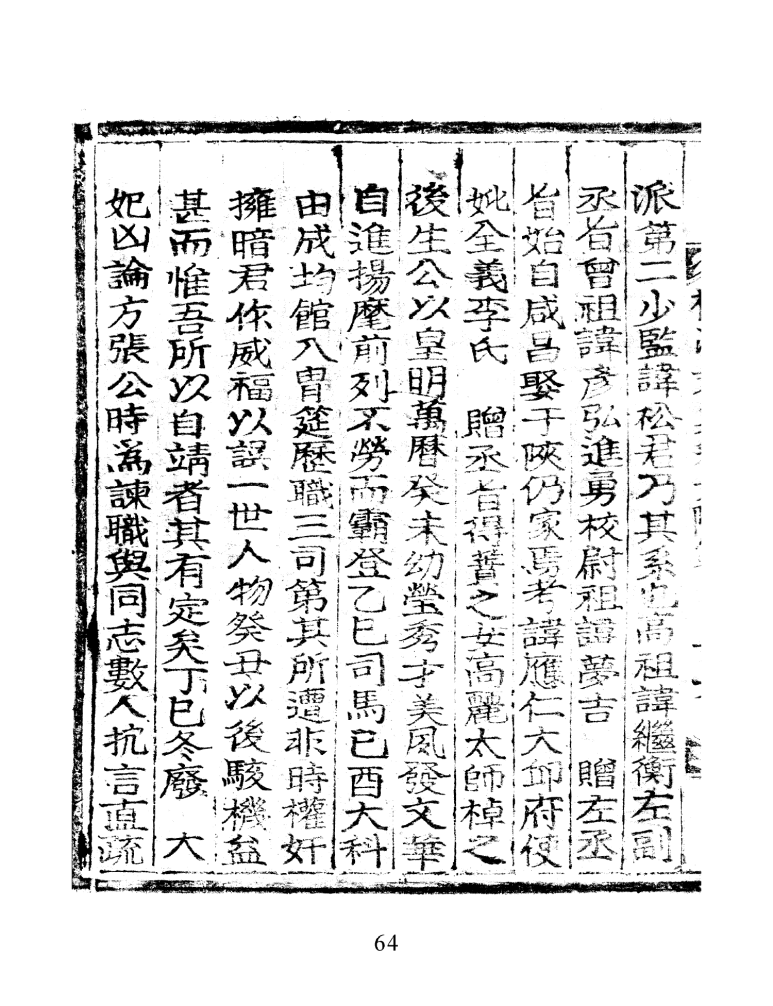 派第二少監諱松君乃其系也高祖諱繼衡左副
丞旨曾祖諱彦弘進勇校尉祖諱夢吉 贈左丞
旨始自咸昌娶于陜仍家焉考諱應仁大邱府使
妣全義李氏 贈丞旨得蕡之女高麗太師棹之
後生公以皇明萬曆癸未幼瑩秀才美風發文華
自進揚麾前列不勞而霸登乙巳司馬己酉大科
由成均館入冑筵歷職三司第其所遭非時權奸
擁暗君作威福以誤一世人物癸丑以後駭機益
甚而惟吾所以自靖者其有定矣丁巳冬廢 大
妃凶論方張公時爲諫職與同志數人抗言直疏
64